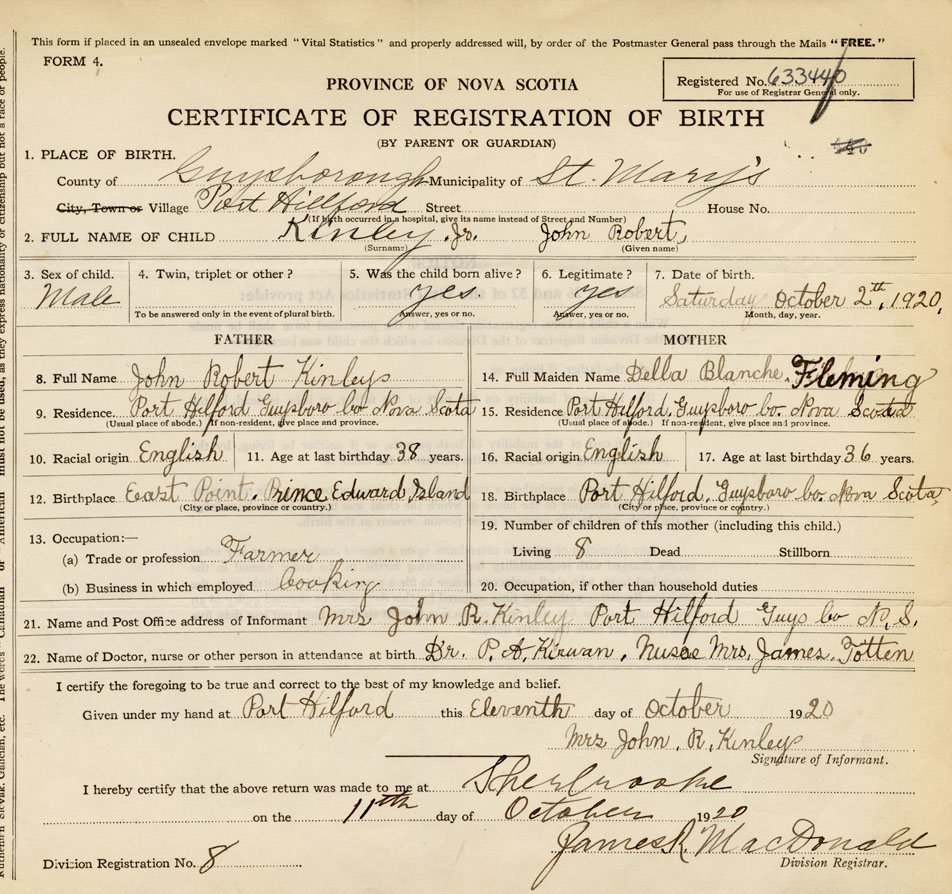 This form if placed in an unsealed envelope marked "Vital Statistics" and properly addressed will, by order of the Postmaster General pass through the Mails "FREE."
FORM 4.
Registered No. 633440
For use of Registrar General only.
PROVINCE OF NOVA SCOTIA
CERTIFICATE OF REGISTRATION OF BIRTH
(BY PARENT OR GUARDIAN)
1. PLACE OF BIRTH.
County of Guysborough Municipality of St. Mary's
City, Town or Village Port Hillford Street House No.
(If birth occurred in a hospital, give its name instead of Street and Number)
2. FULL NAME OF CHILD Kinley Jr. John Robert,
(Surname) (Given name)
3. Sex of child. 4. Twin, triplet or other? 5. Was the child born alive? 6. Legitimate? 7. Date of birth.
Male yes yes Saturday October 2nd, 1920,
To be answered only in the event of plural birth. Answer, yes or no. Answer, yes or no. Month, day, year.
FATHER MOTHER
8. Full Name John Robert Kinley 14. Full Maiden Name Della Blanche. Fleming
9. Residence. Port Hilford Guysboro Co Nova Scota 15. Residence Port Hilford, Guysboro Co. Nova Scotia
(Usual place of abode.) If non-resident, give place and province. (Usual place of abode.) If non-resident, give place and province.
10. Racial origin English 11. Age at last birthday 38 years. 16. Racial origin English 17. Age at last birthday 36 years.
12. Birthplace East Point, Prince Edward Island 18. Birthplace Port Hilford, Guysboro Co. Nova Scota,
(City or place, province or country.) (City or place, province or country.)
13. Occupation:— 19. Number of children of this mother (including this child.)
(a) Trade or profession Farmer Living 8 Dead Stillborn
(b) Business in which employed Cooking 20. Occupation, if other than household duties
21. Name and Post Office address of Informant Mrs John R. Kinley Port Hilford Guys Co N.S.
22. Name of Doctor, nurse or other person in attendance at birth Dr. P. A. Kirwan, Nurse Mrs. James Totten
I certify the foregoing to be true and correct to the best of my knowledge and belief.
Given under my hand at Port Hilford this Eleventh day of October 1920
Mrs John. R. Kinley
Signature of Informant.
I hereby certify that the above return was made to me at Sherbrooke
on the 11th day of October 1920
James R MacDonald
Division Registration No. 8 Division Registrar.